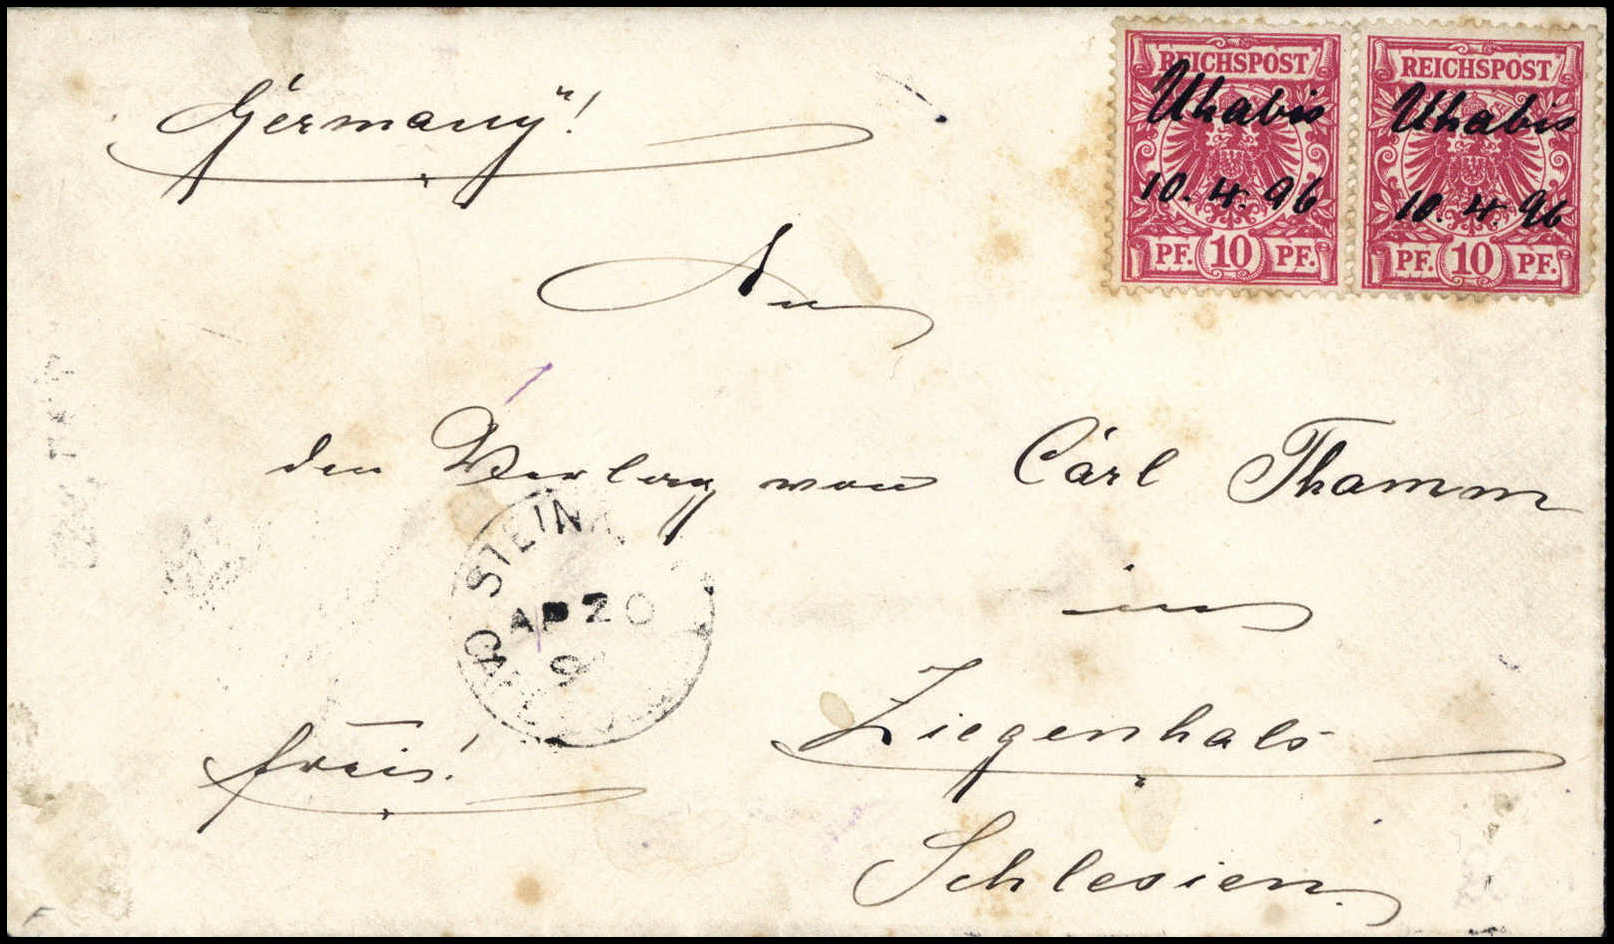 "Germany"!
REICHSPOST
Uhabis
10.4.96
PF. 10 PF.
REICHSPOST
Uhabis
10.4.96
PF. 10 PF.
An
den Verlag von Carl Thamm
in
Ziegenhals
Schlesien.
frei!
STEIN
AP 20
9